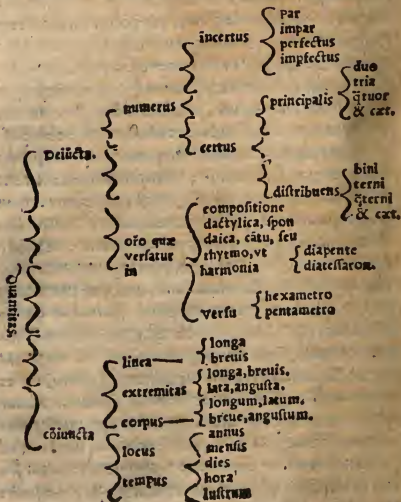 Quantitas.
Deiūcta.
numerus
incertus
par
impar
perfectus
impfectus
certus
principalis
duo
tria
q̃tuor
& cæt.
distribuens
bini
terni
q̃terni
& cæt.
oro quæ
versatur
in
compositione
dactylica, spon
daica, cātu, seu
rhytmo, vt
harmonia
diapente
diatessaron.
versu
hexametro
pentametro
cōiuncta
linea
longa
breuis
extremitas
longa, breuis.
lata, angusta.
corpus
longum, latum.
breue, angustum.
locus
tempus
annus
mensis
dies
hora
lustrum